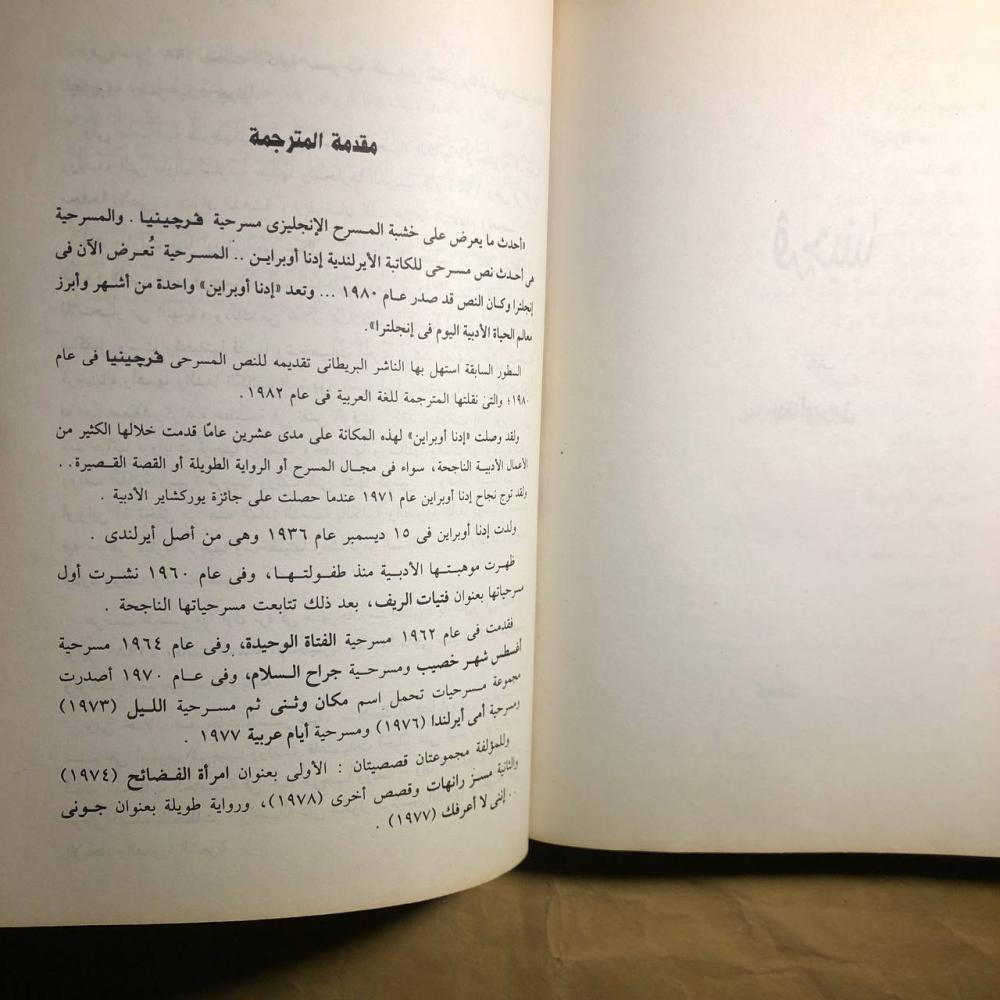 مقدمة المترجمة
«أحدث ما يعرض على خشبة المسرح الإنجليزى مسرحية ڤرچينيا . والمسرحية
هى أحدث نص مسرحى للكاتبة الأيرلندية إدنا أوبراين .. المسرحية تُعرض الآن فى
إنجلترا وكان النص قد صدر عام ١٩٨٠ ... وتعد «إدنا أوبراين» واحدة من أشهر وأبرز
معالم الحياة الأدبية اليوم فى إنجلترا».
السطور السابقة استهل بها الناشر البريطانى تقديمه للنص المسرحى ڤرچينيا فى عام
١٩٨٠؛ والتى نقلتها المترجمة للغة العربية فى عام ١٩٨٢ .
ولقد وصلت «إدنا أوبراين» لهذه المكانة على مدى عشرين عامًا قدمت خلالها الكثير من
الأعمال الأدبية الناجحة، سواء فى مجال المسرح أو الرواية الطويلة أو القصة القصيرة . .
ولقد توج نجاح إدنا أوبراين عام ١٩٧١ عندما حصلت على جائزة يوركشاير الأدبية .
ولدت إدنا أوبراين فى ١٥ ديسمبر عام ١٩٣٦ وهى من أصل أيرلندى .
ظهرت موهبتها الأدبية منذ طفولتها، وفى عام ١٩٦٠ نشرت أول
مسرحياتها بعنوان فتيات الريف، بعد ذلك تتابعت مسرحياتها الناجحة .
فقدمت فى عام ١٩٦٢ مسرحية الفتاة الوحيدة، وفى عام ١٩٦٤ مسرحية
أغسطس شهر خصيب ومسرحية جراح السلام، وفى عام ١٩٧٠ أصدرت
مجموعة مسرحيات تحمل اسم مكان وثنى ثم مسرحية الليل (١٩٧٣)
ومسرحية أمى أيرلندا (١٩٧٦) ومسرحية أيام عربية ١٩٧٧ .
وللمؤلفة مجموعتان قصصيتان : الأولى بعنوان امرأة الفضائح (١٩٧٤)
والثانية مسز رانهات وقصص أخرى (١٩٧٨)، ورواية طويلة بعنوان جونى
.. إننى لا أعرفك (١٩٧٧) .